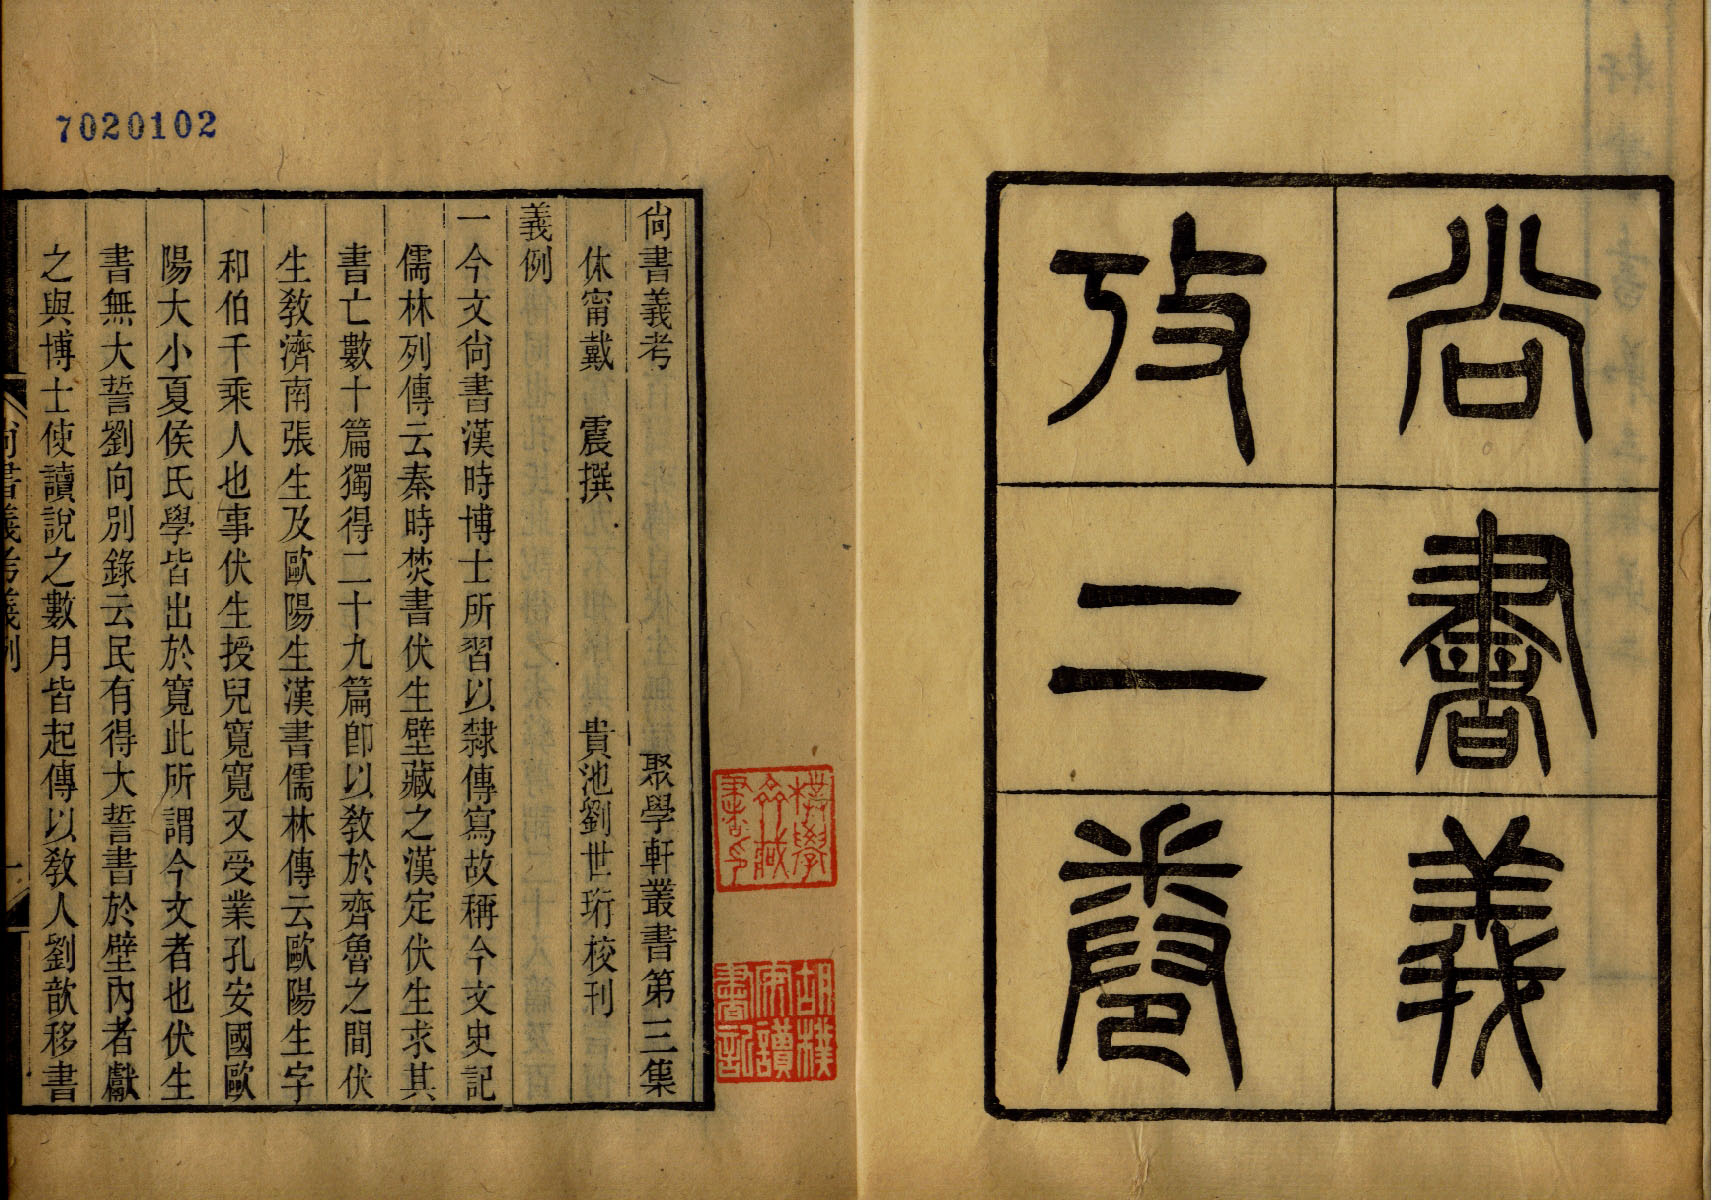 尚書義
攷二卷
尙書義考
聚學軒叢書第三集
休甯戴震撰
貴池劉世珩校刊
義例
一今文尙書漢時博士所習以隸傳寫故稱今文史記
儒林列傳云秦時焚書伏生壁藏之漢定伏生求其
書亡數十篇獨得二十九篇卽以敎於齊魯之間伏
生敎濟南張生及歐陽生漢書儒林傳云歐陽生字
和伯千乘人也事伏生授兒寬寬又受業孔安國歐
陽大小夏侯氏學皆出於寬此所謂今文者也伏生
書無大誓劉向別錄云民有得大誓書於壁內者獻
之與博士使讀說之數月皆起傳以敎人劉歆移書
尙書義考義例
一
7020102
樸學齋藏書印
胡樸安讀書記